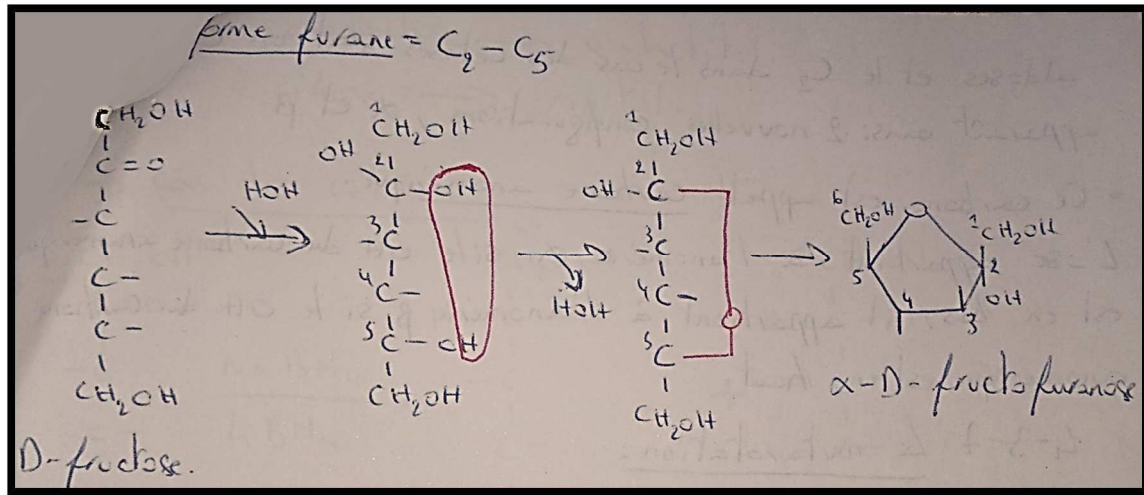 forme furane = C2 - C5
CH2OH
C=O
-C
C-
C-
CH2OH
D-fructose.
HOH
1
CH2OH
OH 2
C-OH
3
-C
4
C-
5
C-OH
CH2OH
HOH
1
CH2OH
2
OH-C
3
-C
4
C-
O
5
C
CH2OH
6
CH2OH O 1
CH2OH
5 2
4 OH
3
α-D-fructofuranose